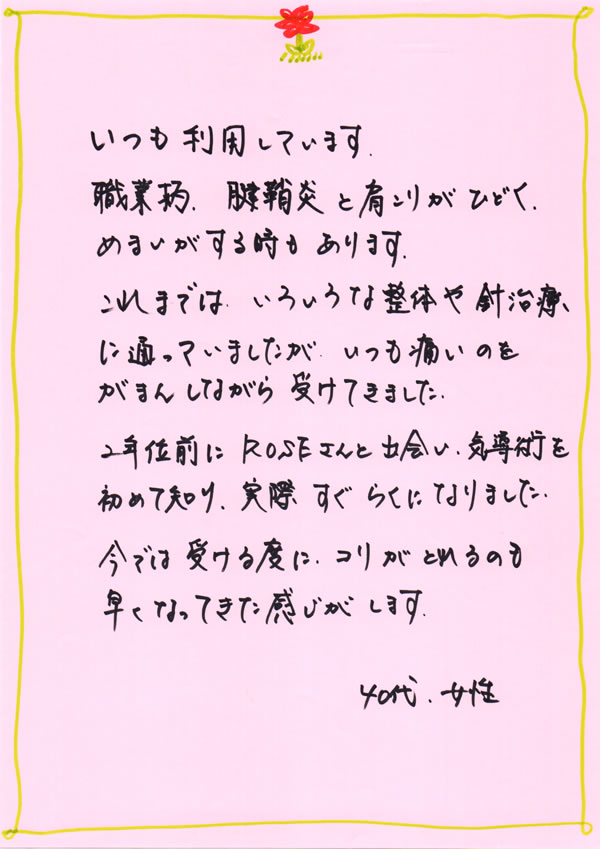 いつも利用しています.
職業柄、腱鞘炎と肩こりがひどく、
めまいがする時もあります.
これまでは、いろいろな整体や針治療、
に通っていましたが、いつも痛いのを
がまんしながら受けてきました.
2年位前にROSEさんと出会い、気導術を
初めて知り、実際すぐらくになりました.
今では受ける度に、コリがとれるのも
早くなってきた感じがします.
40代、女性